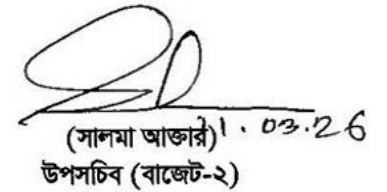 (সালমা আক্তার)
11.03.26
উপসচিব (বাজেট-২)